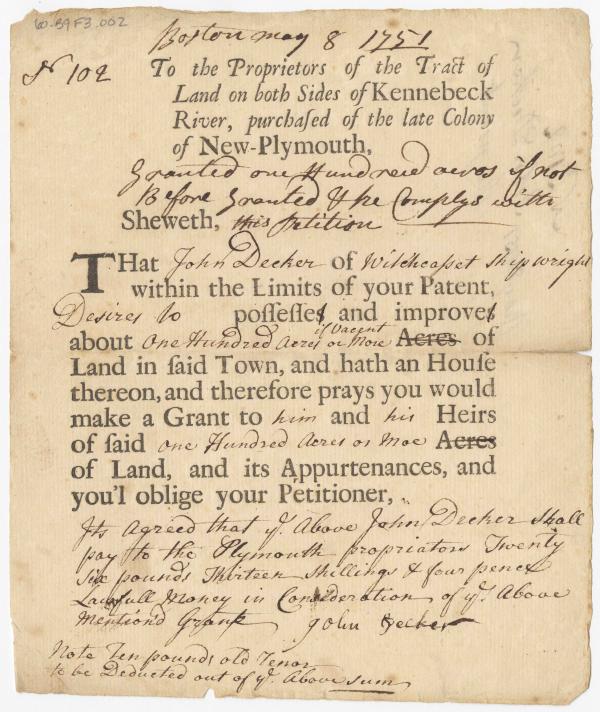 60-B9F3.002
Boston may 8 1751
No 102
To the Proprietors of the Tract of
Land on both Sides of Kennebeck
River, purchaſed of the late Colony
of New-Plymouth,
Granted one Hundread acres if not
Before Granted & he Complys with
Sheweth, this Petition
THat John Decker of Witchcasset Shipwright
within the Limits of your Patent,
Desires to poſſeſſes and improves
if Vacent
about one Hundred Acres or More Acres of
Land in ſaid Town, and hath an Houſe
thereon, and therefore prays you would
make a Grant to him and his Heirs
of ſaid one Hundred Acres or Moe Acres
of Land, and its Appurtenances, and
you'l oblige your Petitioner,
Its Agreed that ye Above John Decker Shall
pay to the Plymouth propriators Twenty
Six pounds Thirteen Shillings & four pence
Lawfull Money in Consideration of ye Above
Mention'd Grant
John Decker
Note Ten pounds old Tenor
to be Deducted out of ye Above sum